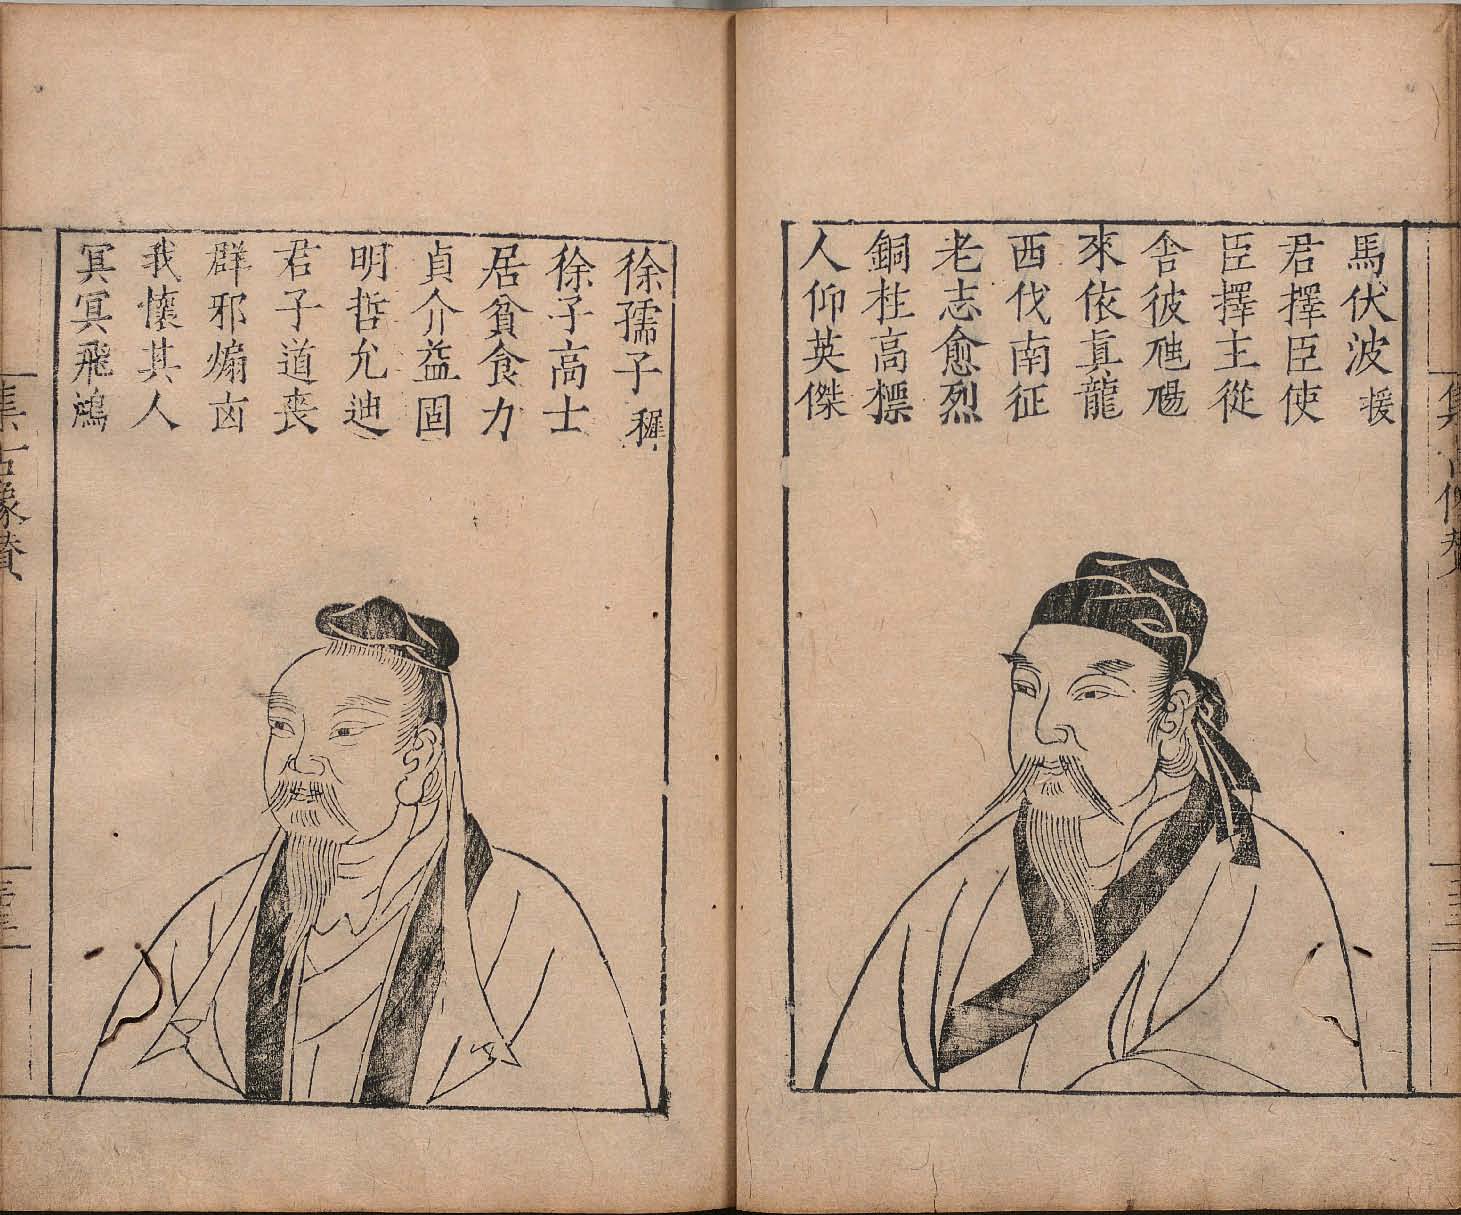 集古像贊
馬伏波 援
君擇臣使
臣擇主從
舎彼
來依眞龍
西伐南征
老志愈烈
銅柱高標
人仰英傑
徐孺子 穉
徐子高士
居貧食力
貞介益固
明哲允迪
君子道喪
群邪煽凶
我懷其人
冥冥飛鴻
集古像贊